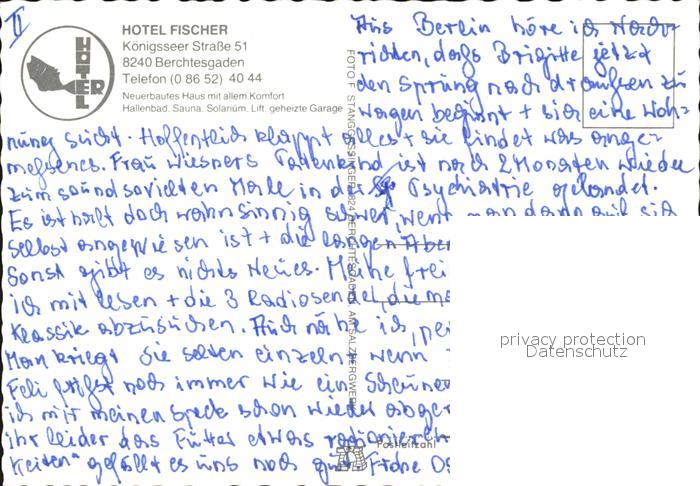 II
HOTEL FISCHER
Königsseer Straße 51
8240 Berchtesgaden
Telefon (0 86 52) 40 44
Neuerbautes Haus mit allem Komfort
Hallenbad. Sauna. Solarium. Lift. geheizte Garage
HOTEL
Aus Berlin höre ich Nach-
richten, daß Brigitte jetzt
den Sprung nach draußen zu
wagen beginnt + sich eine Woh=
nung sucht. Hoffentlich klappt alles + sie findet was ange-
messenes. Frau Wiesners Patenkind ist nach 2 Monaten wieder
zum soundsovielten Male in der Psychiatrie gelandet.
Es ist halt doch wahnsinnig schwer, wenn man dann auf sich
selbst angewiesen ist + die langen Abe
Sonst gibt es nichts Neues. Meine frei
ich mit lesen + die 3 Radiosender, die
Klassik abzusuchen. Auch nähe ich,
Man kriegt sie selten einzeln wenn
Feli frißt noch immer wie ein Scheunen
ich mir meinen Speck schon wieder abge
ihr leider das Futter etwas rationieren
keiten" gefällt es uns noch gut. Frohe Os
Postleitzahl
privacy protection
Datenschutz